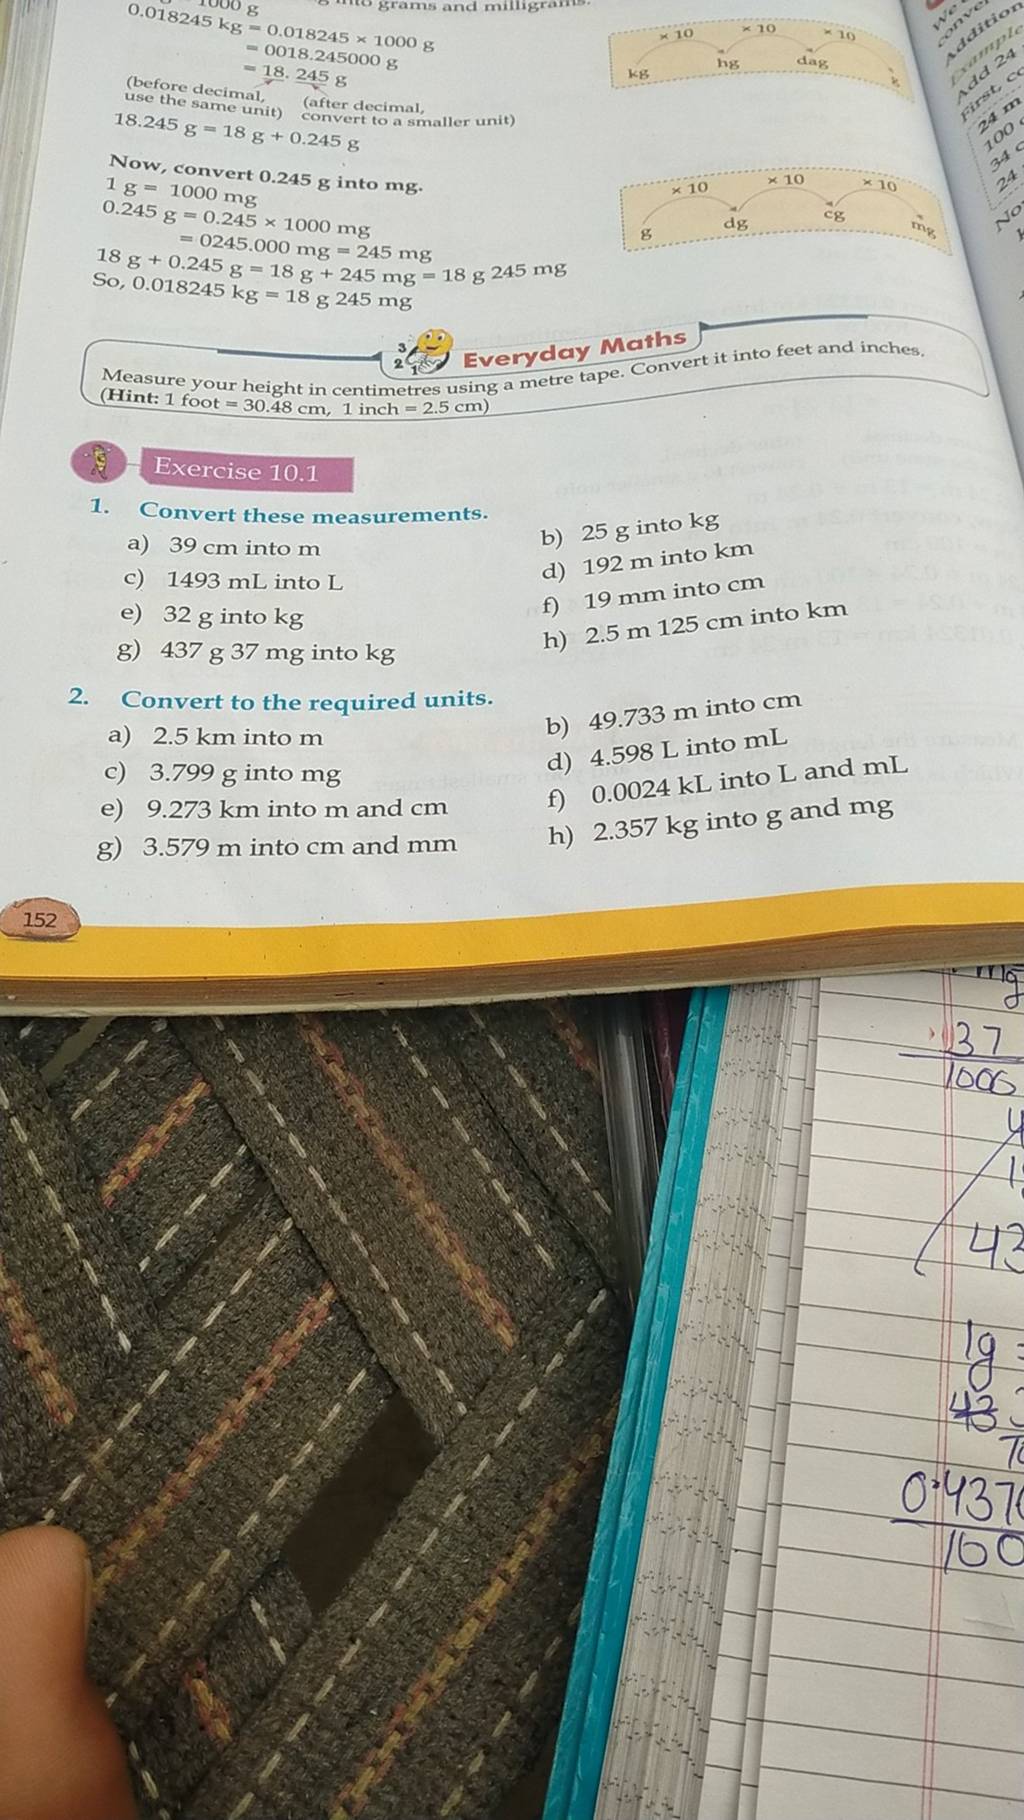 1000 g
grams and milligrams.
0.018245 kg = 0.018245 × 1000 g
= 0018.245000 g
= 18. 245 g
(before decimal, use the same unit) (after decimal, convert to a smaller unit)
18.245 g = 18 g + 0.245 g
× 10 × 10 × 10
kg hg dag g
Now, convert 0.245 g into mg.
1 g = 1000 mg
0.245 g = 0.245 × 1000 mg
= 0245.000 mg = 245 mg
18 g + 0.245 g = 18 g + 245 mg = 18 g 245 mg
So, 0.018245 kg = 18 g 245 mg
× 10 × 10 × 10
g dg cg mg
3 2 1 Everyday Maths
Measure your height in centimetres using a metre tape. Convert it into feet and inches.
(Hint: 1 foot = 30.48 cm, 1 inch = 2.5 cm)
Exercise 10.1
1. Convert these measurements.
a) 39 cm into m
b) 25 g into kg
c) 1493 mL into L
d) 192 m into km
e) 32 g into kg
f) 19 mm into cm
g) 437 g 37 mg into kg
h) 2.5 m 125 cm into km
2. Convert to the required units.
a) 2.5 km into m
b) 49.733 m into cm
c) 3.799 g into mg
d) 4.598 L into mL
e) 9.273 km into m and cm
f) 0.0024 kL into L and mL
g) 3.579 m into cm and mm
h) 2.357 kg into g and mg
152
Addition
Add 24
First,
24 m
100
34
24
mg
37
1000
43
1g =
0.437
100